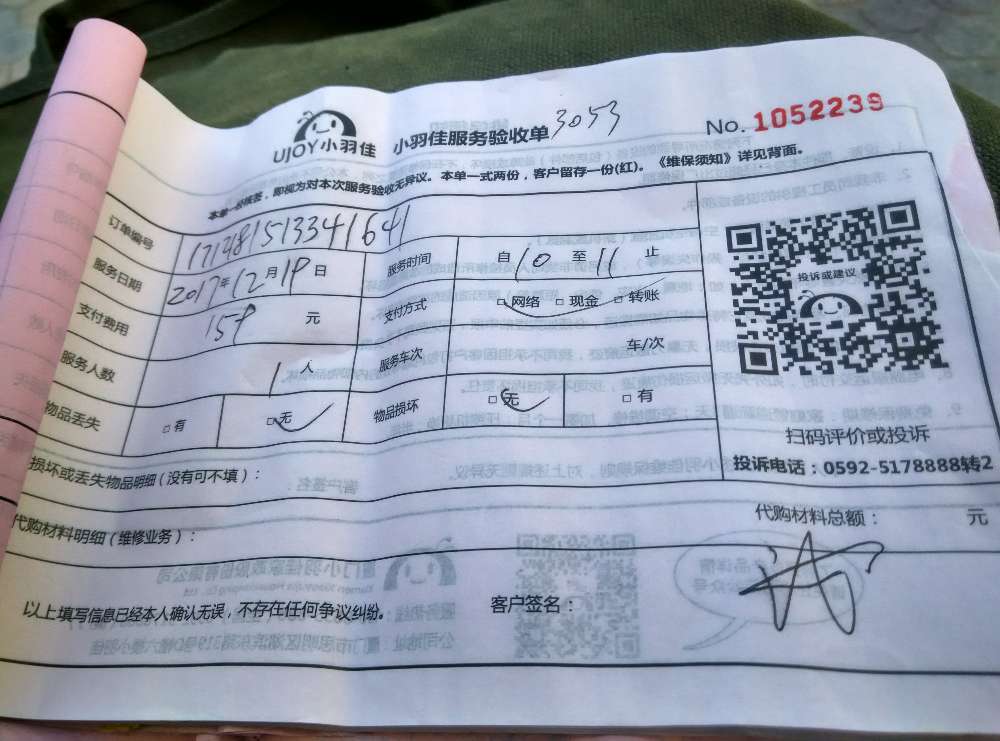 UJOY小羽佳
小羽佳服务验收单 3053
No. 1052239
本单一经核签，即视为对本次服务验收无异议。本单一式两份，客户留存一份(红)。《维保须知》详见背面。
订单编号 171281513341641
服务日期 2017年12月19日 服务时间 自10至11止
支付费用 159元 支付方式 □网络 □现金 □转账
服务人数 1人 服务车次 车/次
物品丢失 □有 □无 物品损坏 □无 □有
投诉或建议
扫码评价或投诉
投诉电话：0592-5178888转2
损坏或丢失物品明细(没有可不填)：
代购材料明细(维修业务)：
代购材料总额： 元
以上填写信息已经本人确认无误，不存在任何争议纠纷。 客户签名：